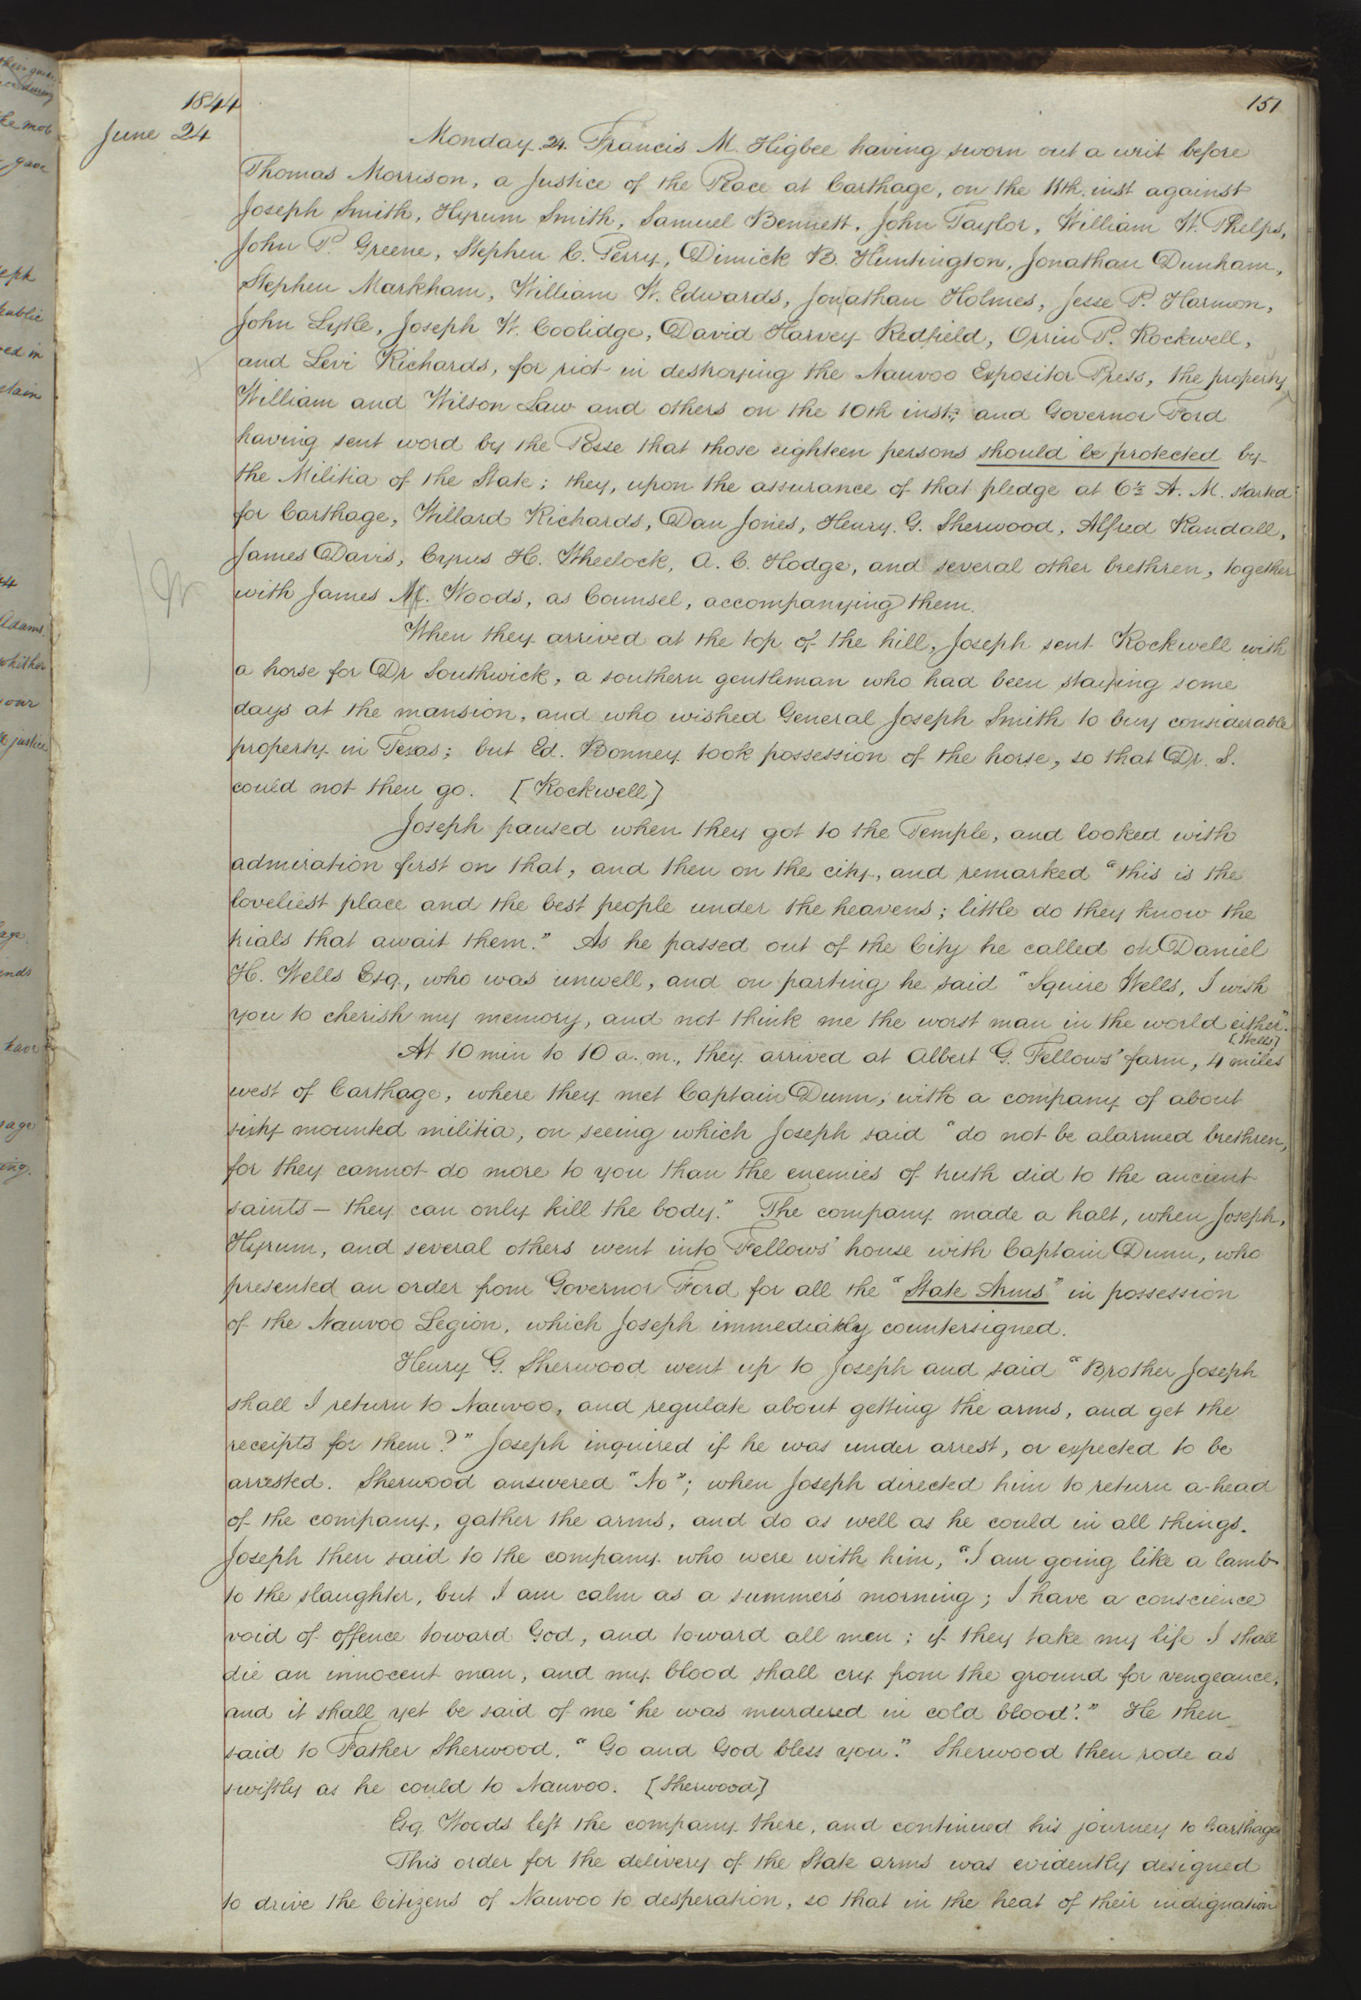 151
1844
June 24
Monday 24. Francis M. Higbee having sworn out a writ before
Thomas Morrison, a Justice of the Peace at Carthage, on the 11th. inst against
Joseph Smith, Hyrum Smith, Samuel Bennett, John Taylor, William W. Phelps,
John P. Greene, Stephen C. Perry, Dimick B. Huntington, Jonathan Dunham,
Stephen Markham, William W. Edwards, Jonathan Holmes, Jesse P. Harmon,
John Lytle, Joseph W. Coolidge, David Harvey Redfield, Orrin P. Rockwell,
and Levi Richards, for riot in destroying the Nauvoo Expositor Press, the property
William and Wilson Law and others on the 10th inst; and Governor Ford
having sent word by the Posse that those eighteen persons should be protected by
the Militia of the State; they, upon the assurance of that pledge at 6½ A. M. started
for Carthage, Willard Richards, Dan Jones, Henry G. Sherwood, Alfred Randall,
James Davis, Cyrus H. Wheelock, A. C. Hodge, and several other brethren, together
with James M. Woods, as Counsel, accompanying them.
When they arrived at the top of the hill, Joseph sent Rockwell with
a horse for Dr Southwick, a southern gentleman who had been staying some
days at the mansion, and who wished General Joseph Smith to buy considerable
property in Texas; but Ed. Bonney took possession of the horse, so that Dr. S.
could not then go. [Rockwell]
Joseph paused when they got to the Temple, and looked with
admiration first on that, and then on the city, and remarked "this is the
loveliest place and the best people under the heavens; little do they know the
trials that await them." As he passed out of the City he called on Daniel
H. Wells Esq., who was unwell, and on parting he said "Squire Wells, I wish
you to cherish my memory, and not think me the worst man in the world either".
[Wells]
At 10 min to 10 a. m., they arrived at Albert G. Fellows' farm, 4 miles
west of Carthage, where they met Captain Dunn, with a company of about
sixty mounted militia, on seeing which Joseph said "do not be alarmed brethren,
for they cannot do more to you than the enemies of truth did to the ancient
saints — they can only kill the body." The company made a halt, when Joseph,
Hyrum, and several others went into Fellows' house with Captain Dunn, who
presented an order from Governor Ford for all the "State Arms" in possession
of the Nauvoo Legion, which Joseph immediately countersigned.
Henry G. Sherwood went up to Joseph and said "Brother Joseph
shall I return to Nauvoo, and regulate about getting the arms, and get the
receipts for them?" Joseph inquired if he was under arrest, or expected to be
arrested. Sherwood answered "No"; when Joseph directed him to return a-head
of the company, gather the arms, and do as well as he could in all things.
Joseph then said to the company who were with him, "I am going like a lamb
to the slaughter, but I am calm as a summer's morning; I have a conscience
void of offence toward God, and toward all men; if they take my life I shall
die an innocent man, and my blood shall cry from the ground for vengeance,
and it shall yet be said of me 'he was murdered in cold blood'." He then
said to Father Sherwood, "Go and God bless you." Sherwood then rode as
swiftly as he could to Nauvoo. [Sherwood]
Esq. Woods left the company there, and continued his journey to Carthage
This order for the delivery of the State arms was evidently designed
to drive the Citizens of Nauvoo to desperation, so that in the heat of their indignation